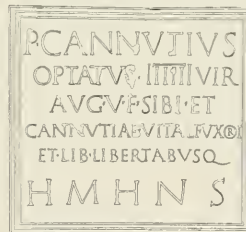 P·CANNVTIVS
OPTATVS· IIIIIIVIR
AVG·V·F·SIBI·ET
CANTNVTIAE VITAL FVXORI
ET·LIB·LIBERTABVSQ
H M H N S